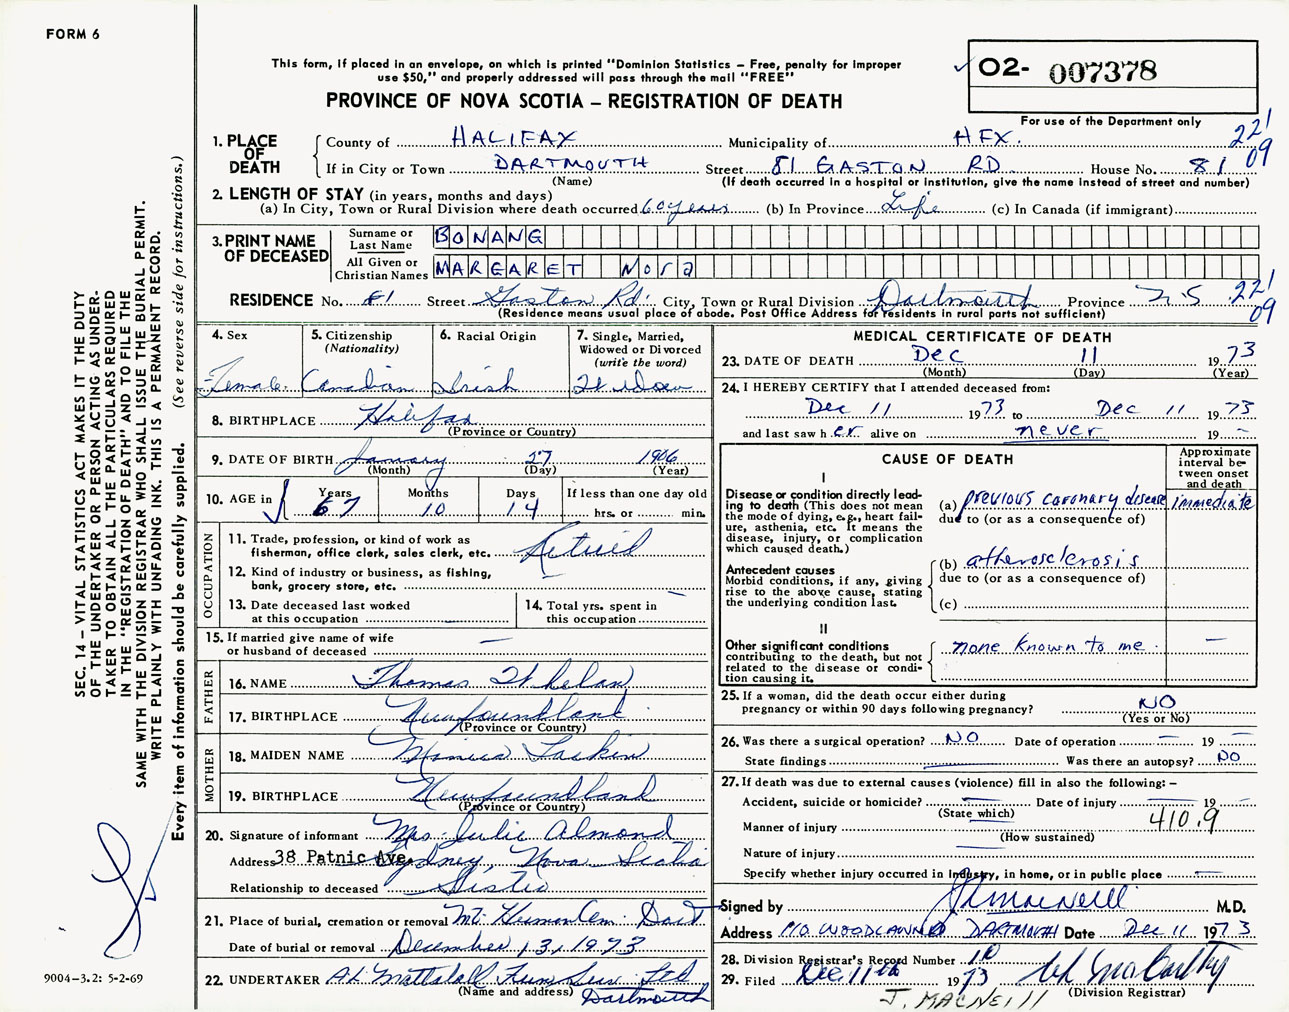 FORM 6
This form, if placed in an envelope, on which is printed "Dominion Statistics – Free, penalty for improper
use $50," and properly addressed will pass through the mail "FREE"
O2- 007378
For use of the Department only
PROVINCE OF NOVA SCOTIA – REGISTRATION OF DEATH
221
09
1. PLACE OF DEATH
County of HALIFAX Municipality of HFX.
If in City or Town DARTMOUTH Street 81 GASTON RD House No. 81
(Name) (If death occurred in a hospital or institution, give the name instead of street and number)
2. LENGTH OF STAY (in years, months and days)
(a) In City, Town or Rural Division where death occurred 60 years (b) In Province Life (c) In Canada (if immigrant)
3. PRINT NAME OF DECEASED
Surname or Last Name BONANG
All Given or Christian Names MARGARET Nora
RESIDENCE No. 81 Street Gaston Rd. City, Town or Rural Division Dartmouth Province N.S. 221
09
(Residence means usual place of abode. Post Office Address for residents in rural parts not sufficient)
4. Sex
Female
5. Citizenship
(Nationality)
Canadian
6. Racial Origin
Irish
7. Single, Married,
Widowed or Divorced
(write the word)
Widow
8. BIRTHPLACE Halifax
(Province or Country)
9. DATE OF BIRTH January 27 1906
(Month) (Day) (Year)
10. AGE in
Years Months Days If less than one day old
67 10 14 hrs. or min.
OCCUPATION
11. Trade, profession, or kind of work as
fisherman, office clerk, sales clerk, etc. Retired
12. Kind of industry or business, as fishing,
bank, grocery store, etc. –
13. Date deceased last worked
at this occupation
14. Total yrs. spent in
this occupation
15. If married give name of wife
or husband of deceased –
FATHER
16. NAME Thomas Whelan
17. BIRTHPLACE Newfoundland
(Province or Country)
MOTHER
18. MAIDEN NAME Monica Larkin
19. BIRTHPLACE Newfoundland
(Province or Country)
20. Signature of informant Mrs. Julie Almond
Address 38 Patnic Ave. Sydney, Nova Scotia
Relationship to deceased Sister
21. Place of burial, cremation or removal Mt. Hermon Cem. Dart
Date of burial or removal December 13, 1973
22. UNDERTAKER A.L. Mattatall Fun Serv Ltd
(Name and address) Dartmouth
MEDICAL CERTIFICATE OF DEATH
23. DATE OF DEATH Dec 11 1973
(Month) (Day) (Year)
24. I HEREBY CERTIFY that I attended deceased from:
Dec 11 1973 to Dec 11 1973
and last saw her alive on never 19 –
CAUSE OF DEATH
Approximate
interval be-
tween onset
and death
I
Disease or condition directly lead-
ing to death (This does not mean
the mode of dying, e.g., heart fail-
ure, asthenia, etc. It means the
disease, injury, or complication
which caused death.)
(a) previous coronary disease immediate
due to (or as a consequence of)
Antecedent causes
Morbid conditions, if any, giving
rise to the above cause, stating
the underlying condition last.
(b) atherosclerosis
due to (or as a consequence of)
(c)
II
Other significant conditions
contributing to the death, but not
related to the disease or condi-
tion causing it.
none known to me. –
25. If a woman, did the death occur either during
pregnancy or within 90 days following pregnancy? NO
(Yes or No)
26. Was there a surgical operation? NO Date of operation – 19 –
State findings – Was there an autopsy? NO
27. If death was due to external causes (violence) fill in also the following: –
Accident, suicide or homicide? – Date of injury – 19 –
(State which)
Manner of injury – 410.9
(How sustained)
Nature of injury –
Specify whether injury occurred in Industry, in home, or in public place –
Signed by J MacNeill M.D.
Address M/O WOODLAWN DARTMOUTH Date Dec 11 1973
28. Division Registrar's Record Number 10
29. Filed Dec 11th 1973
(Division Registrar)
J. MACNEILL
SEC. 14 – VITAL STATISTICS ACT MAKES IT THE DUTY
OF THE UNDERTAKER OR PERSON ACTING AS UNDER-
TAKER TO OBTAIN ALL THE PARTICULARS REQUIRED
IN THE "REGISTRATION OF DEATH" AND TO FILE THE
SAME WITH THE DIVISION REGISTRAR WHO SHALL ISSUE THE BURIAL PERMIT.
WRITE PLAINLY WITH UNFADING INK. THIS IS A PERMANENT RECORD.
Every item of information should be carefully supplied. (See reverse side for instructions.)
9004–3.2: 5-2-69